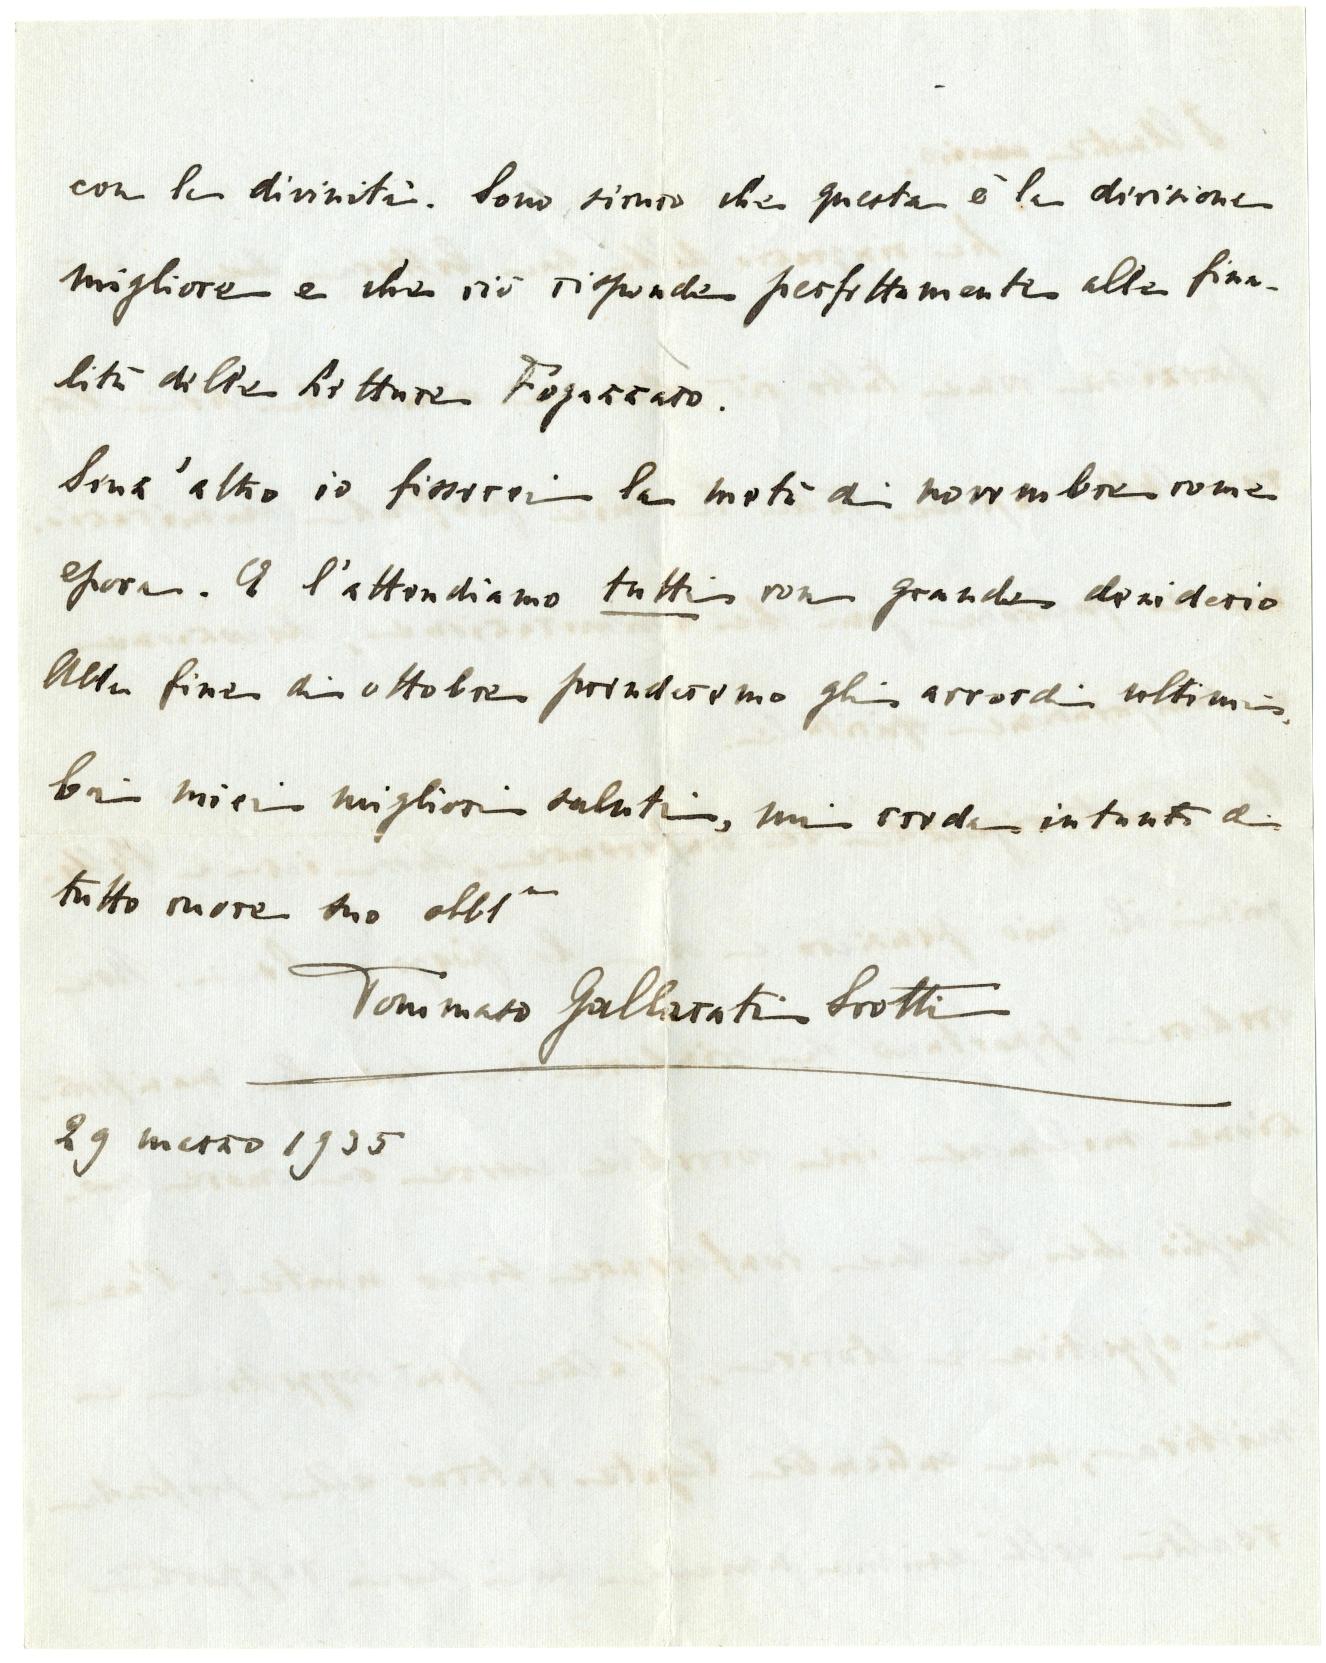 con la divinità. Sono sicuro che questa è la divisione
migliore e che ciò risponde perfettamente alle fina-
lità delle Letture Fogazzaro.
Senz'altro io fisserei la metà di novembre come
epoca. E l'attendiamo tutti con grande desiderio
Alla fine di ottobre prenderemo gli accordi ultimi.
Coi miei migliori saluti, mi creda intanto di
tutto cuore suo obbl^mo
Tommaso Gallarati Scotti
29 marzo 1935